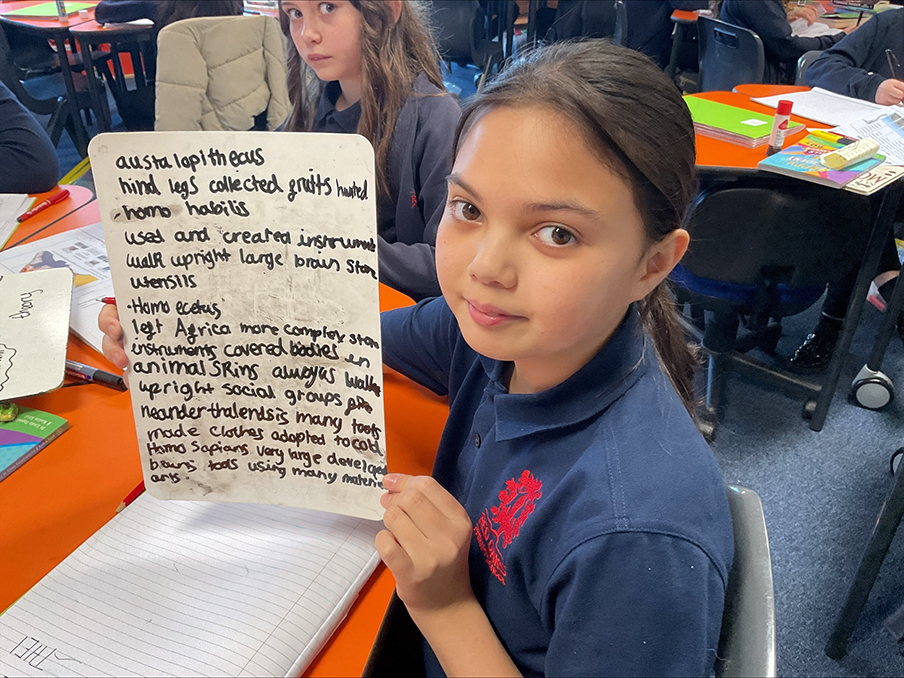 austalopithecus
hind legs collected gruits hunted
-homo habilis
used and created instrument
walk upright large brain stone
utensils
-Homo ecetus
legt Agrica more complex ston
instruments covered bodies in
animal skins always walk
upright social groups
neanderthalensis many tools
made clothes adopted to cold
Homo Sapians very large developed
brains tools using many materie
arts.
theory
THE